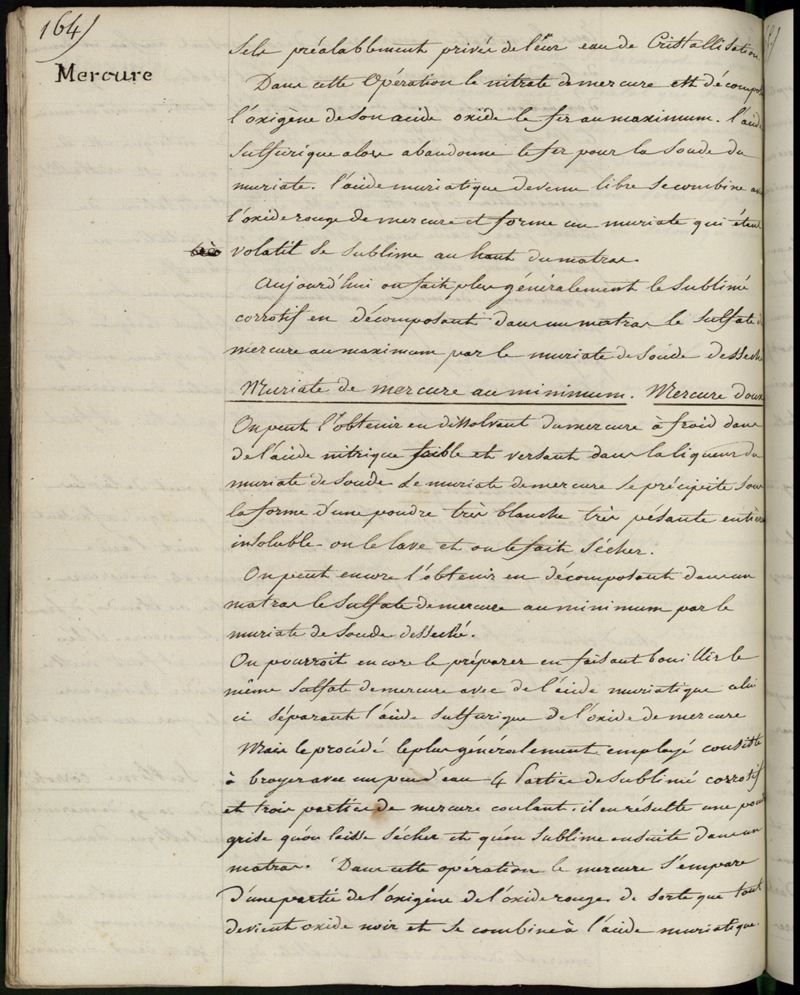 164)
Mercure
Sels préalablement privés de leur eau de Cristallisation
Dans cette Opération le nitrate de mercure est décompo
l'oxigène de son acide oxide le fer au maximum. l'acid
Sulfurique alors abandonne le fer pour la Soude du
muriate. l'acide muriatique devenu libre se combine av
l'oxide rouge de mercure et forme un muriate qui étan
très volatil se sublime au haut du matras
Aujourd'hui on fait plus généralement le sublimé
corrosif en décomposant dans un matras le sulfate d
mercure au maximum par le muriate de Soude desseché
Muriate de mercure au minimum. Mercure doux
On peut l'obtenir en dissolvant du mercure à froid dans
de l'acide nitrique faible et versant dans la liqueur du
muriate de Soude Le muriate de mercure se précipite sous
la forme d'une poudre très blanche très pésante entièr
insoluble - on le lave et on le fait sécher.
On peut encore l'obtenir en décomposant dans un
matras le Sulfate de mercure au minimum par le
muriate de Soude desseché.
On pourroit encore le préparer en faisant bouillir le
même sulfate de mercure avec de l'acide muriatique celui
ci séparant l'acide sulfurique de l'oxide de mercure
Mais le procédé le plus généralement employé consiste
à broyer avec un peu d'eau 4 Parties de sublimé corrosif
et trois parties de mercure coulant. il en résulte une poud
grise qu'on laisse sécher et qu'on sublime ensuite dans un
matras. Dans cette opération le mercure s'empare
d'une partie de l'oxigène de l'oxide rouge de sorte que tout
devient oxide noir et se combine à l'acide muriatique.